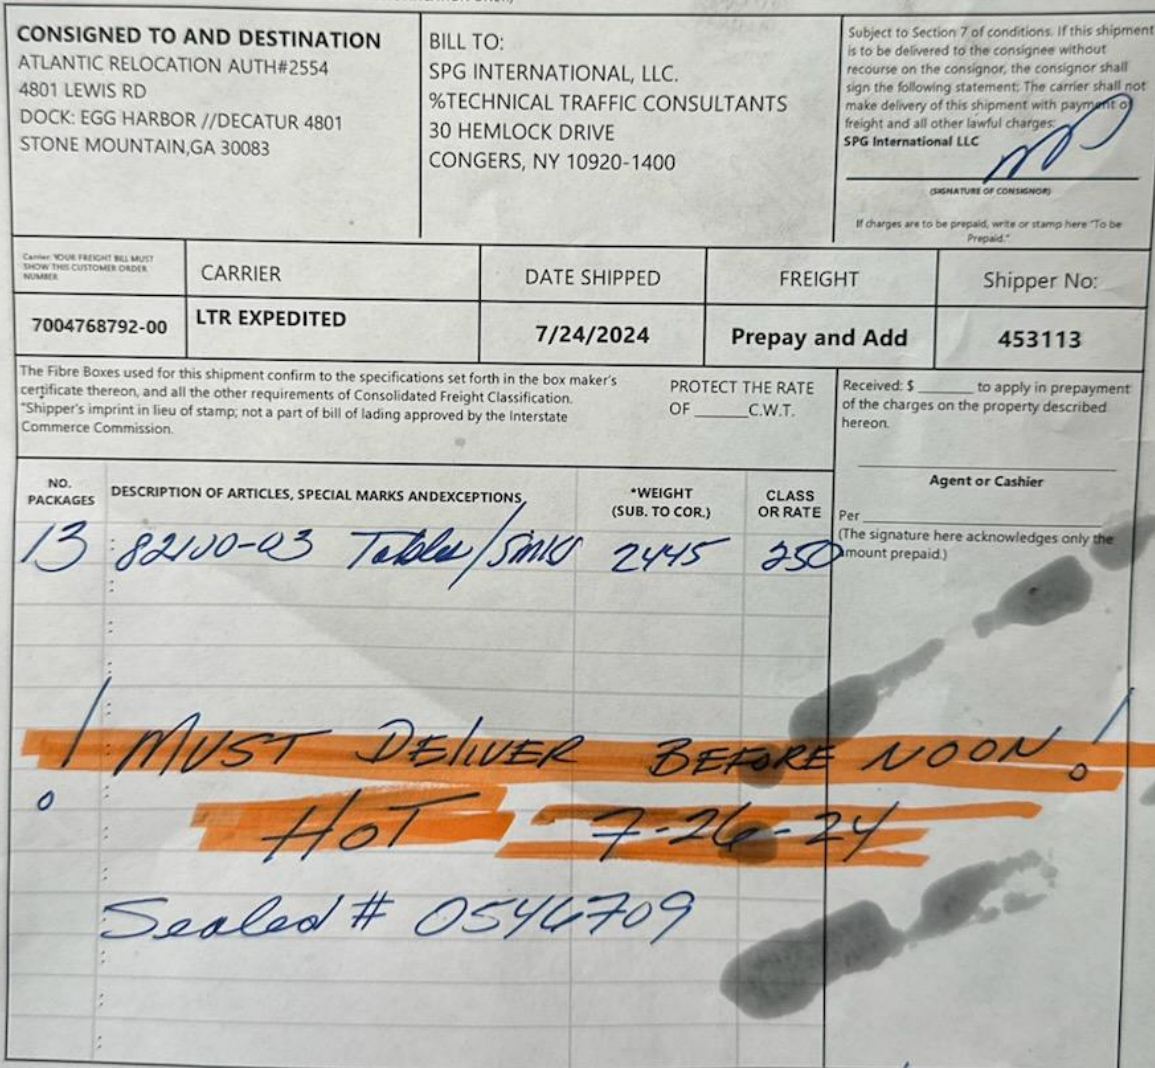 CONSIGNED TO AND DESTINATION
ATLANTIC RELOCATION AUTH#2554
4801 LEWIS RD
DOCK: EGG HARBOR //DECATUR 4801
STONE MOUNTAIN,GA 30083
BILL TO:
SPG INTERNATIONAL, LLC.
%TECHNICAL TRAFFIC CONSULTANTS
30 HEMLOCK DRIVE
CONGERS, NY 10920-1400
Subject to Section 7 of conditions. If this shipment
is to be delivered to the consignee without
recourse on the consignor, the consignor shall
sign the following statement: The carrier shall not
make delivery of this shipment with payment of
freight and all other lawful charges:
SPG International LLC
(SIGNATURE OF CONSIGNOR)
If charges are to be prepaid, write or stamp here "To be
Prepaid."
Carrier: YOUR FREIGHT BILL MUST
SHOW THIS CUSTOMER ORDER
NUMBER
CARRIER
DATE SHIPPED
FREIGHT
Shipper No:
7004768792-00
LTR EXPEDITED
7/24/2024
Prepay and Add
453113
The Fibre Boxes used for this shipment confirm to the specifications set forth in the box maker's
certificate thereon, and all the other requirements of Consolidated Freight Classification.
"Shipper's imprint in lieu of stamp; not a part of bill of lading approved by the Interstate
Commerce Commission.
PROTECT THE RATE
OF _____C.W.T.
Received: $ ______ to apply in prepayment
of the charges on the property described
hereon.
Agent or Cashier
Per
(The signature here acknowledges only the
amount prepaid.)
NO.
PACKAGES
DESCRIPTION OF ARTICLES, SPECIAL MARKS ANDEXCEPTIONS
*WEIGHT
(SUB. TO COR.)
CLASS
OR RATE
13 82100-03 Tables/Sinks 2445 250
! MUST DELIVER BEFORE NOON!
HOT 7-26-24
Sealed # 0546709